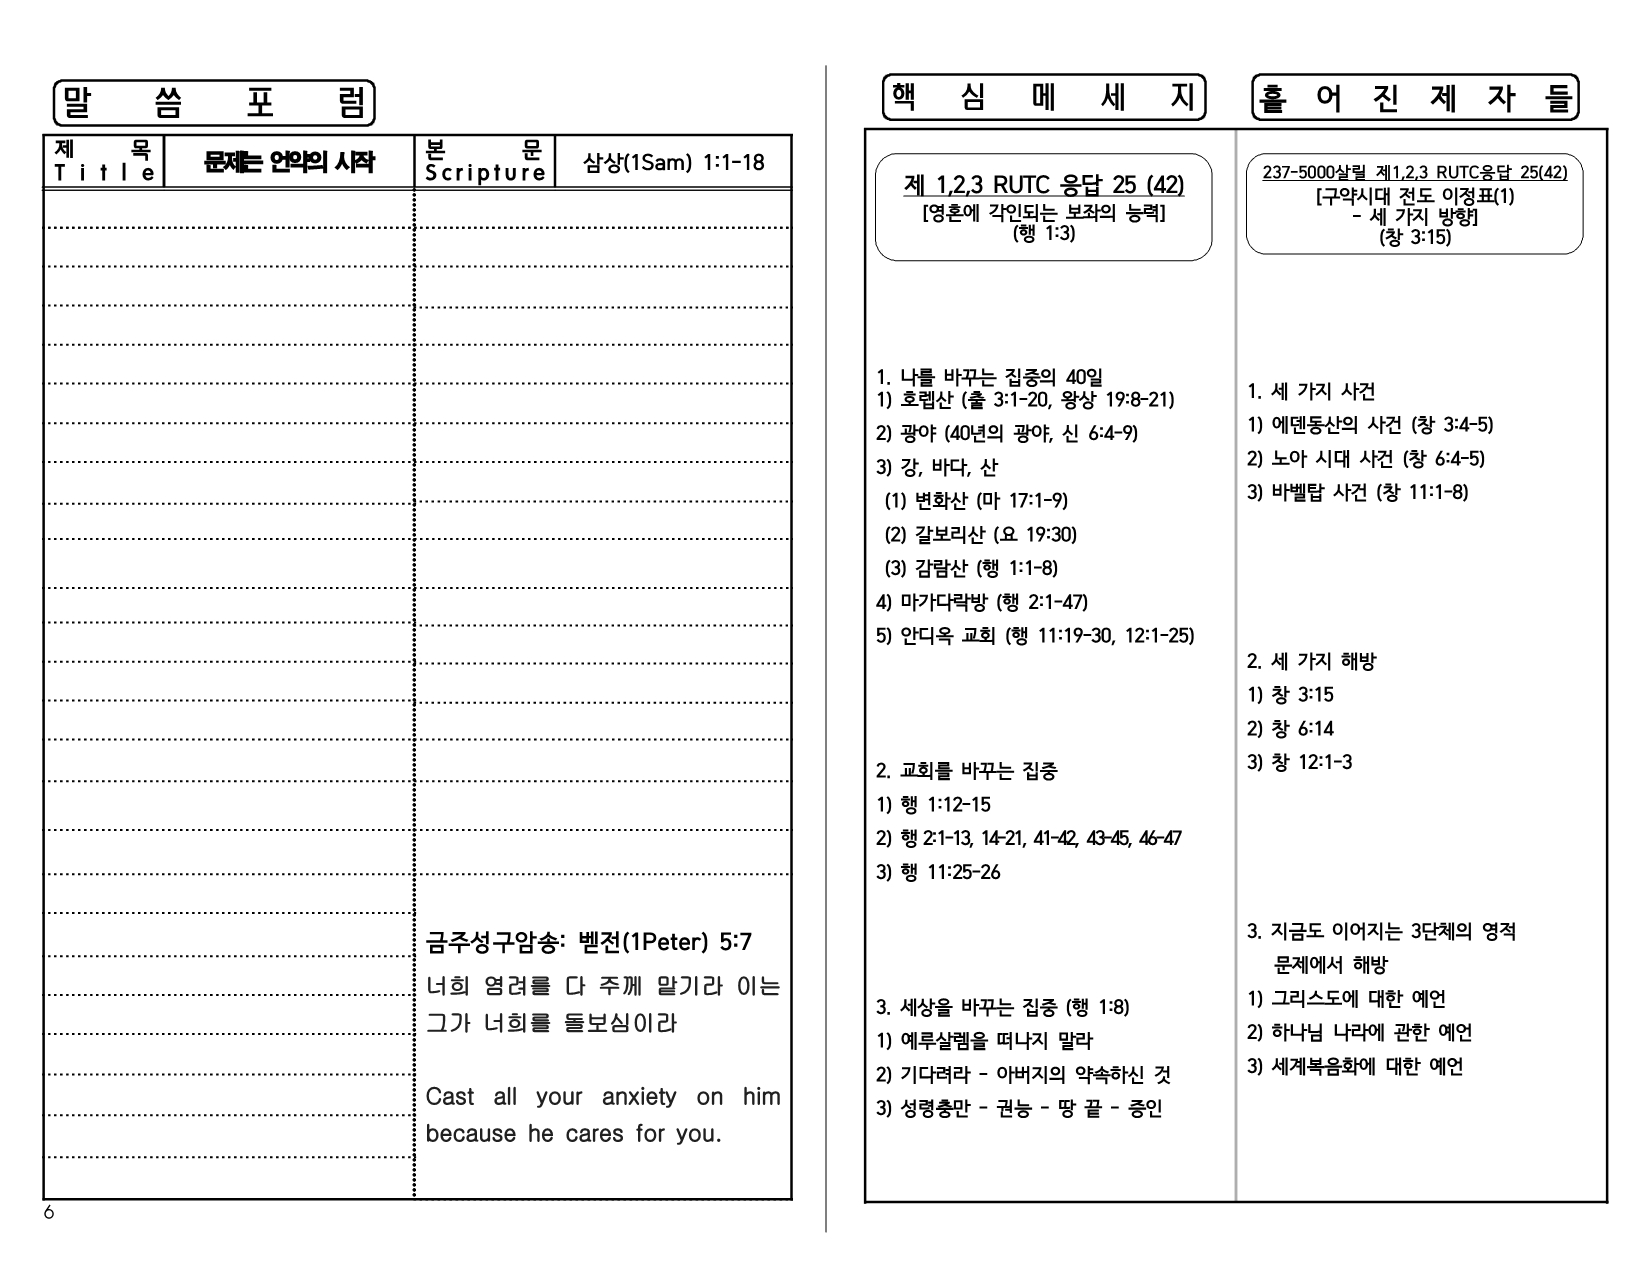 말 씀 포 럼
제 목
Title
문제는 언약의 시작
본 문
Scripture
삼상(1Sam) 1:1-18
금주성구암송: 벧전(1Peter) 5:7
너희 염려를 다 주께 맡기라 이는
그가 너희를 돌보심이라
Cast all your anxiety on him
because he cares for you.
6
핵 심 메 세 지
제 1,2,3 RUTC 응답 25 (42)
[영혼에 각인되는 보좌의 능력]
(행 1:3)
1. 나를 바꾸는 집중의 40일
1) 호렙산 (출 3:1-20, 왕상 19:8-21)
2) 광야 (40년의 광야, 신 6:4-9)
3) 강, 바다, 산
(1) 변화산 (마 17:1-9)
(2) 갈보리산 (요 19:30)
(3) 감람산 (행 1:1-8)
4) 마가다락방 (행 2:1-47)
5) 안디옥 교회 (행 11:19-30, 12:1-25)
2. 교회를 바꾸는 집중
1) 행 1:12-15
2) 행 2:1-13, 14-21, 41-42, 43-45, 46-47
3) 행 11:25-26
3. 세상을 바꾸는 집중 (행 1:8)
1) 예루살렘을 떠나지 말라
2) 기다려라 - 아버지의 약속하신 것
3) 성령충만 - 권능 - 땅 끝 - 증인
흩 어 진 제 자 들
237-5000살릴 제1,2,3 RUTC응답 25(42)
[구약시대 전도 이정표(1)
- 세 가지 방향]
(창 3:15)
1. 세 가지 사건
1) 에덴동산의 사건 (창 3:4-5)
2) 노아 시대 사건 (창 6:4-5)
3) 바벨탑 사건 (창 11:1-8)
2. 세 가지 해방
1) 창 3:15
2) 창 6:14
3) 창 12:1-3
3. 지금도 이어지는 3단체의 영적
문제에서 해방
1) 그리스도에 대한 예언
2) 하나님 나라에 관한 예언
3) 세계복음화에 대한 예언